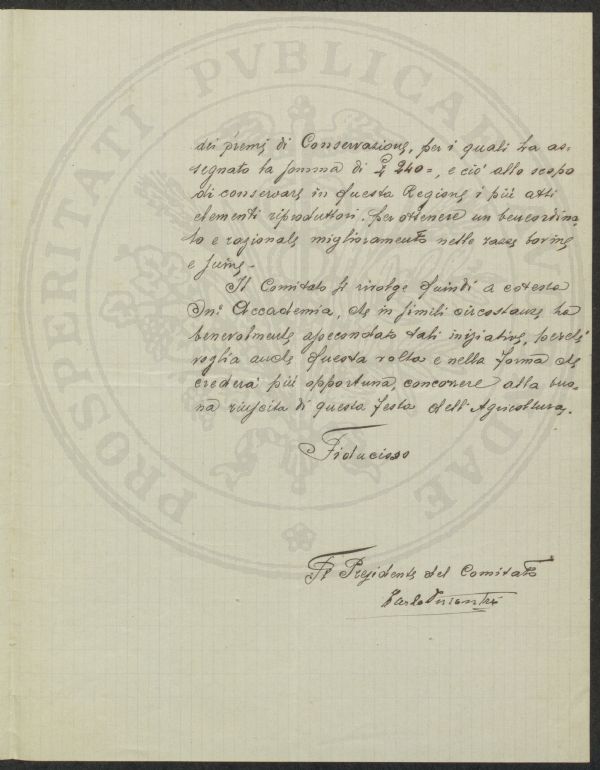 dei premi di Conservazione, per i quali ha as-
segnato la somma di £ 240=, e ciò allo scopo
di conservare in questa Regione i più atti
elementi riproduttori. per ottenere un ben ordina-
to e razionale miglioramento nelle razze bovine
e suine.-
Il Comitato si rivolge quindi a cotesta
On. Accademia, che in simili circostanze ha
benevolmente assecondato tali iniziative, perché
voglia anche questa volta e nella forma che
crederà più opportuna, concorrere alla buo-
na riuscita di questa festa dell'Agricoltura.
Fiducioso
Il Presidente del Comitato
Carlo
PROSPERITATI PVBLICAE